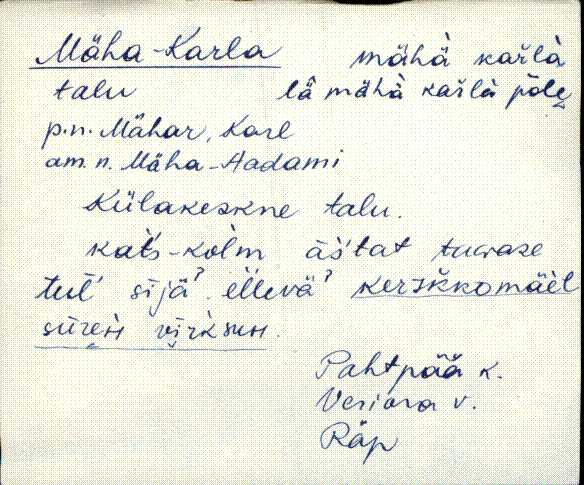 Mäha-Karla mähà kar̆là
talu lä mähà kar̆là pōle
p.n. Mähar, Karl
am. n. Mäha-Aadami
Külakeskne talu.
kat's-kol'm āśtat tagase
tul' sijä? ellevä? kerikkomäèl
sūreh virksuh.
Pahtpää k.
Veriora v.
Räp